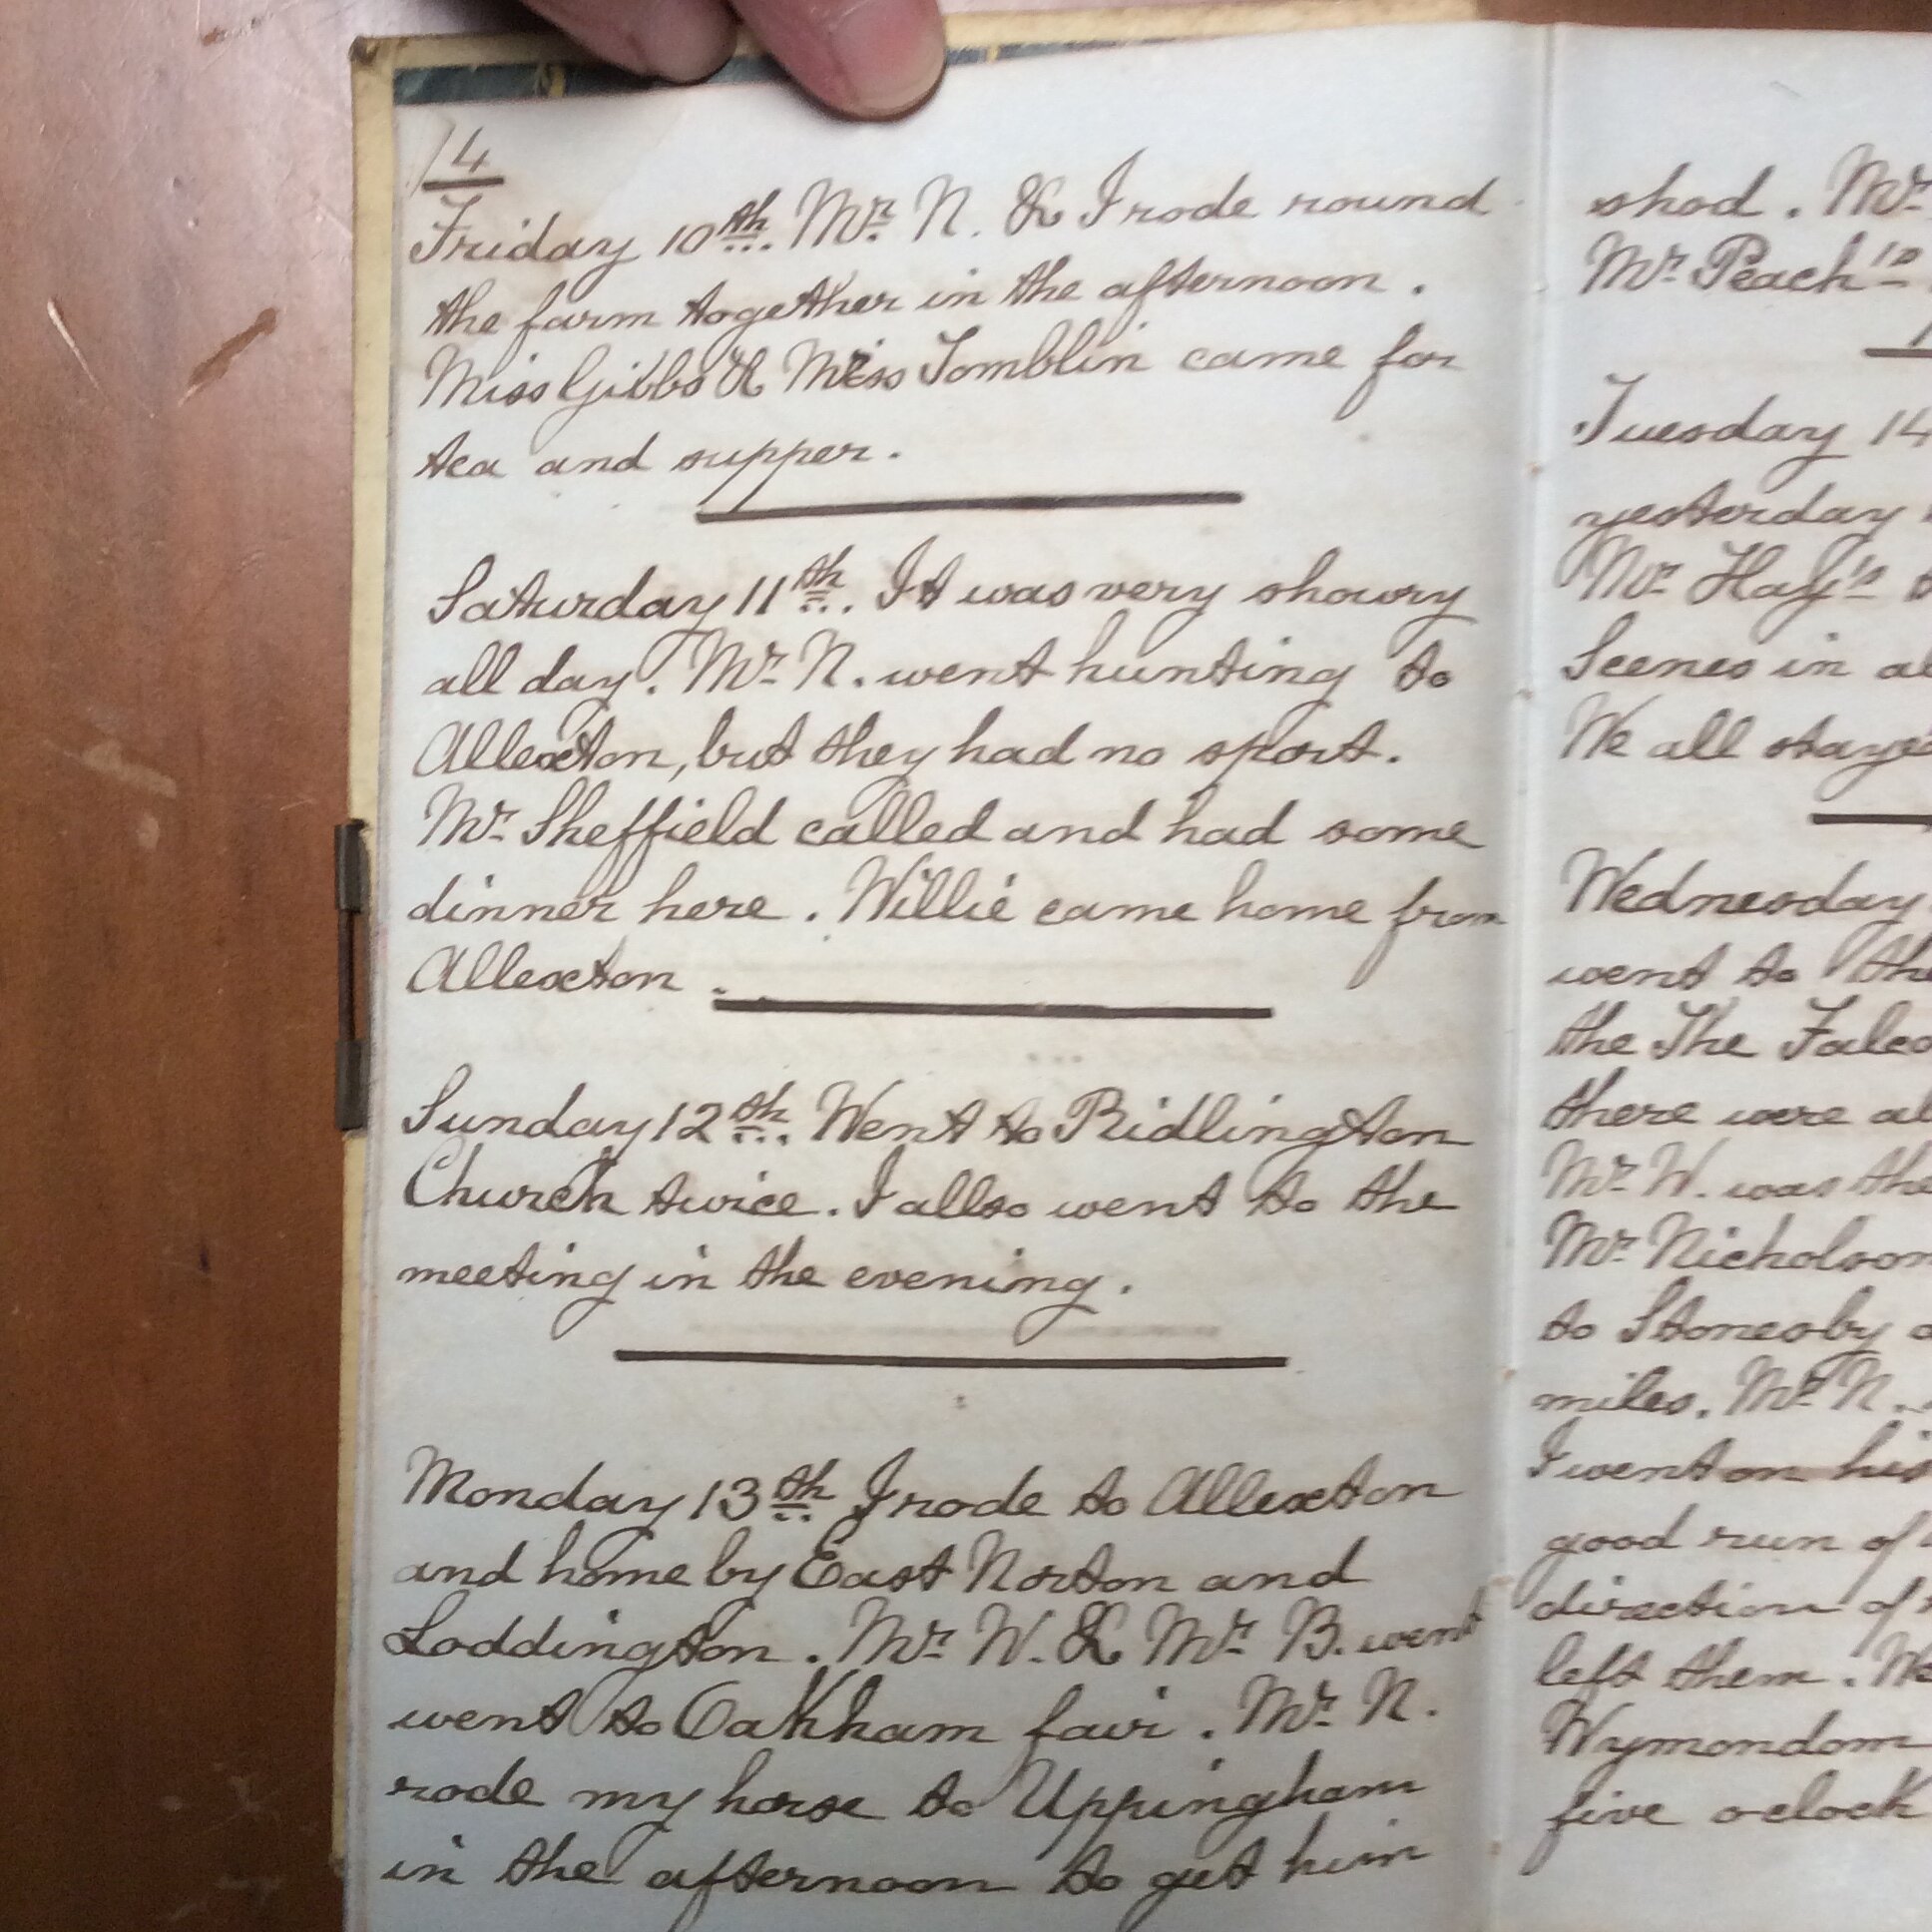 14
Friday 10th. Mr. N. & I rode round
the farm together in the afternoon.
Miss Gibbs & Miss Tomblin came for
tea and supper.
Saturday 11th. It was very showry
all day. Mr. N. went hunting to
Allexton, but they had no sport.
Mr. Sheffield called and had some
dinner here. Willie came home from
Allexton.
Sunday 12th. Went to Ridlington
Church twice. I allso went to the
meeting in the evening.
Monday 13th I rode to Allexton
and home by East Norton and
Loddington. Mr. W. & Mr. B. went
went to Oakham fair. Mr. N.
rode my horse to Uppingham
in the afternoon to get him
shod. Mr.
Mr. Peach's
Tuesday 14
yesterday
Mr. Hay's
Scenes in
We all
Wednesday
went to the
the The
there were
Mr. W. was the
Mr. Nicholson
to Stonesby
miles. Mr. N.
I went on his
good run of
direction of
left them.
Wymondom
five o-clock